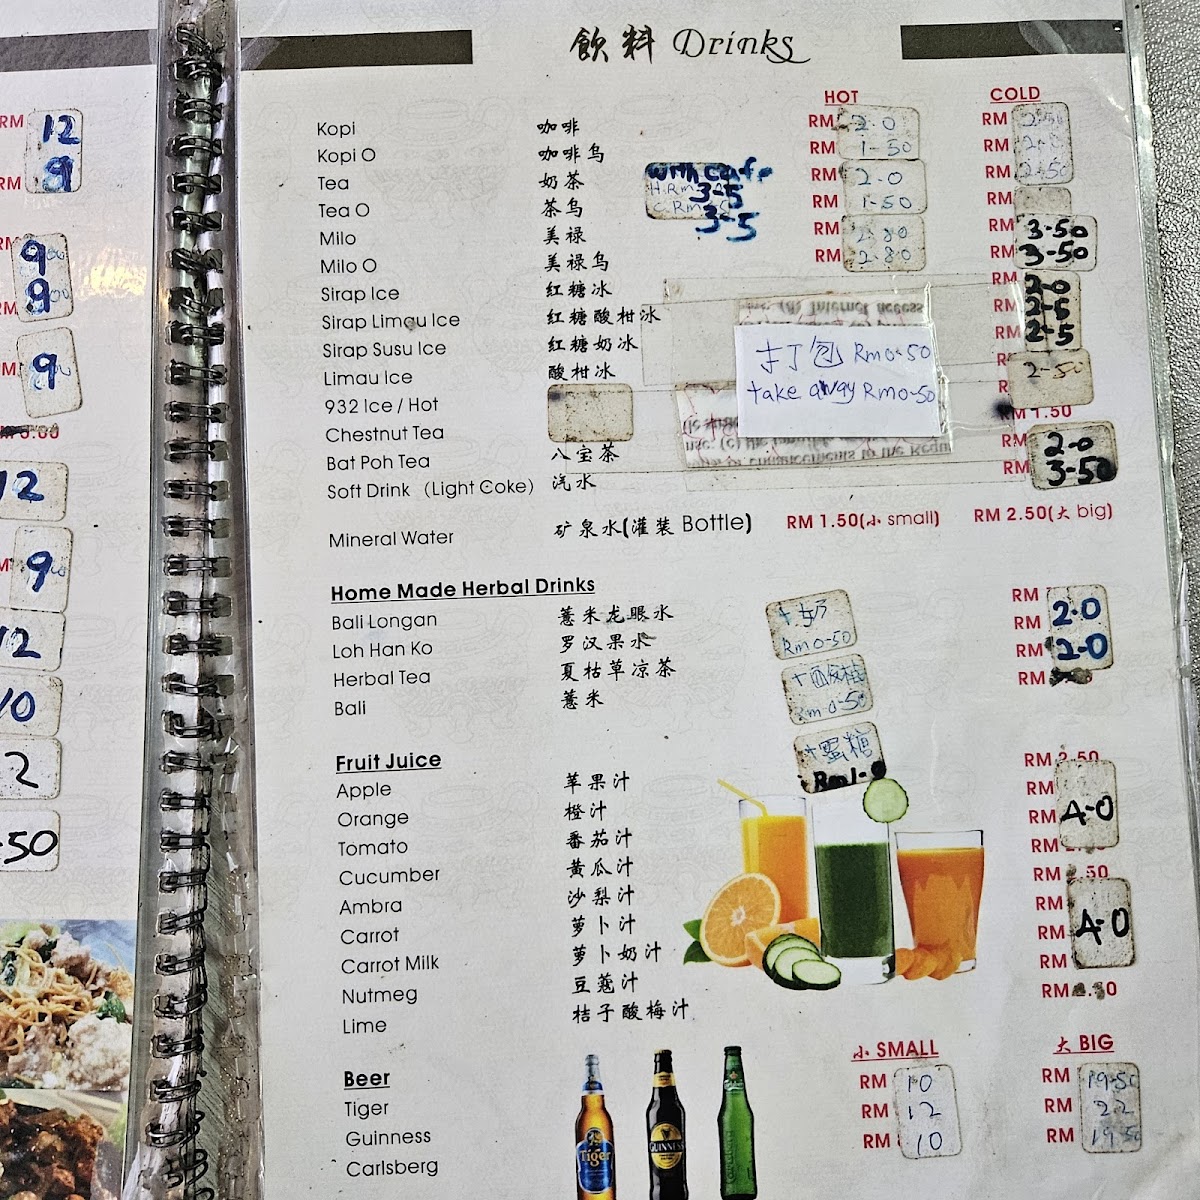 飲料 Drinks
HOT COLD
Kopi 咖啡 RM 2-0 RM 2-50
Kopi O 咖啡乌 RM 1-50 RM 2-0
Tea 奶茶 RM 2-0 RM 2-50
Tea O 茶乌 RM 1-50 RM
Milo 美禄 RM 2-80 RM 3-50
Milo O 美禄乌 RM 2-80 RM 3-50
with cafe
H.Rm 3-5
C.Rm 3-5
Sirap Ice 红糖冰 RM 2-0
Sirap Limau Ice 红糖酸柑冰 RM 2-5
Sirap Susu Ice 红糖奶冰 RM 2-5
Limau Ice 酸柑冰 2-50
932 Ice / Hot RM 1.50
Chestnut Tea
Bat Poh Tea 八宝茶 2-0
Soft Drink (Light Coke) 汽水 3-50
打包 Rm0-50
take away Rm0-50
Mineral Water 矿泉水(灌装 Bottle) RM 1.50(小 small) RM 2.50(大 big)
Home Made Herbal Drinks
Bali Longan 薏米龙眼水 RM
Loh Han Ko 罗汉果水 RM 2-0
Herbal Tea 夏枯草凉茶 RM 2-0
Bali 薏米 RM
+奶
Rm0-50
+酸梅
Rm0-50
+蜜糖
Rm1-0
Fruit Juice
Apple 苹果汁 RM 2.50
Orange 橙汁 RM
Tomato 番茄汁 RM 4-0
Cucumber 黄瓜汁 RM
Ambra 沙梨汁 RM .50
Carrot 萝卜汁 RM
Carrot Milk 萝卜奶汁 RM 4-0
Nutmeg 豆蔻汁 RM
Lime 桔子酸梅汁 RM .50
小 SMALL 大 BIG
Beer
Tiger RM 10 RM 19-50
Guinness RM 12 RM 22
Carlsberg RM 10 RM 19-50
Tiger
GUINNESS
RM 12
RM 9
9
9
9
12
9
12
10
2
-50